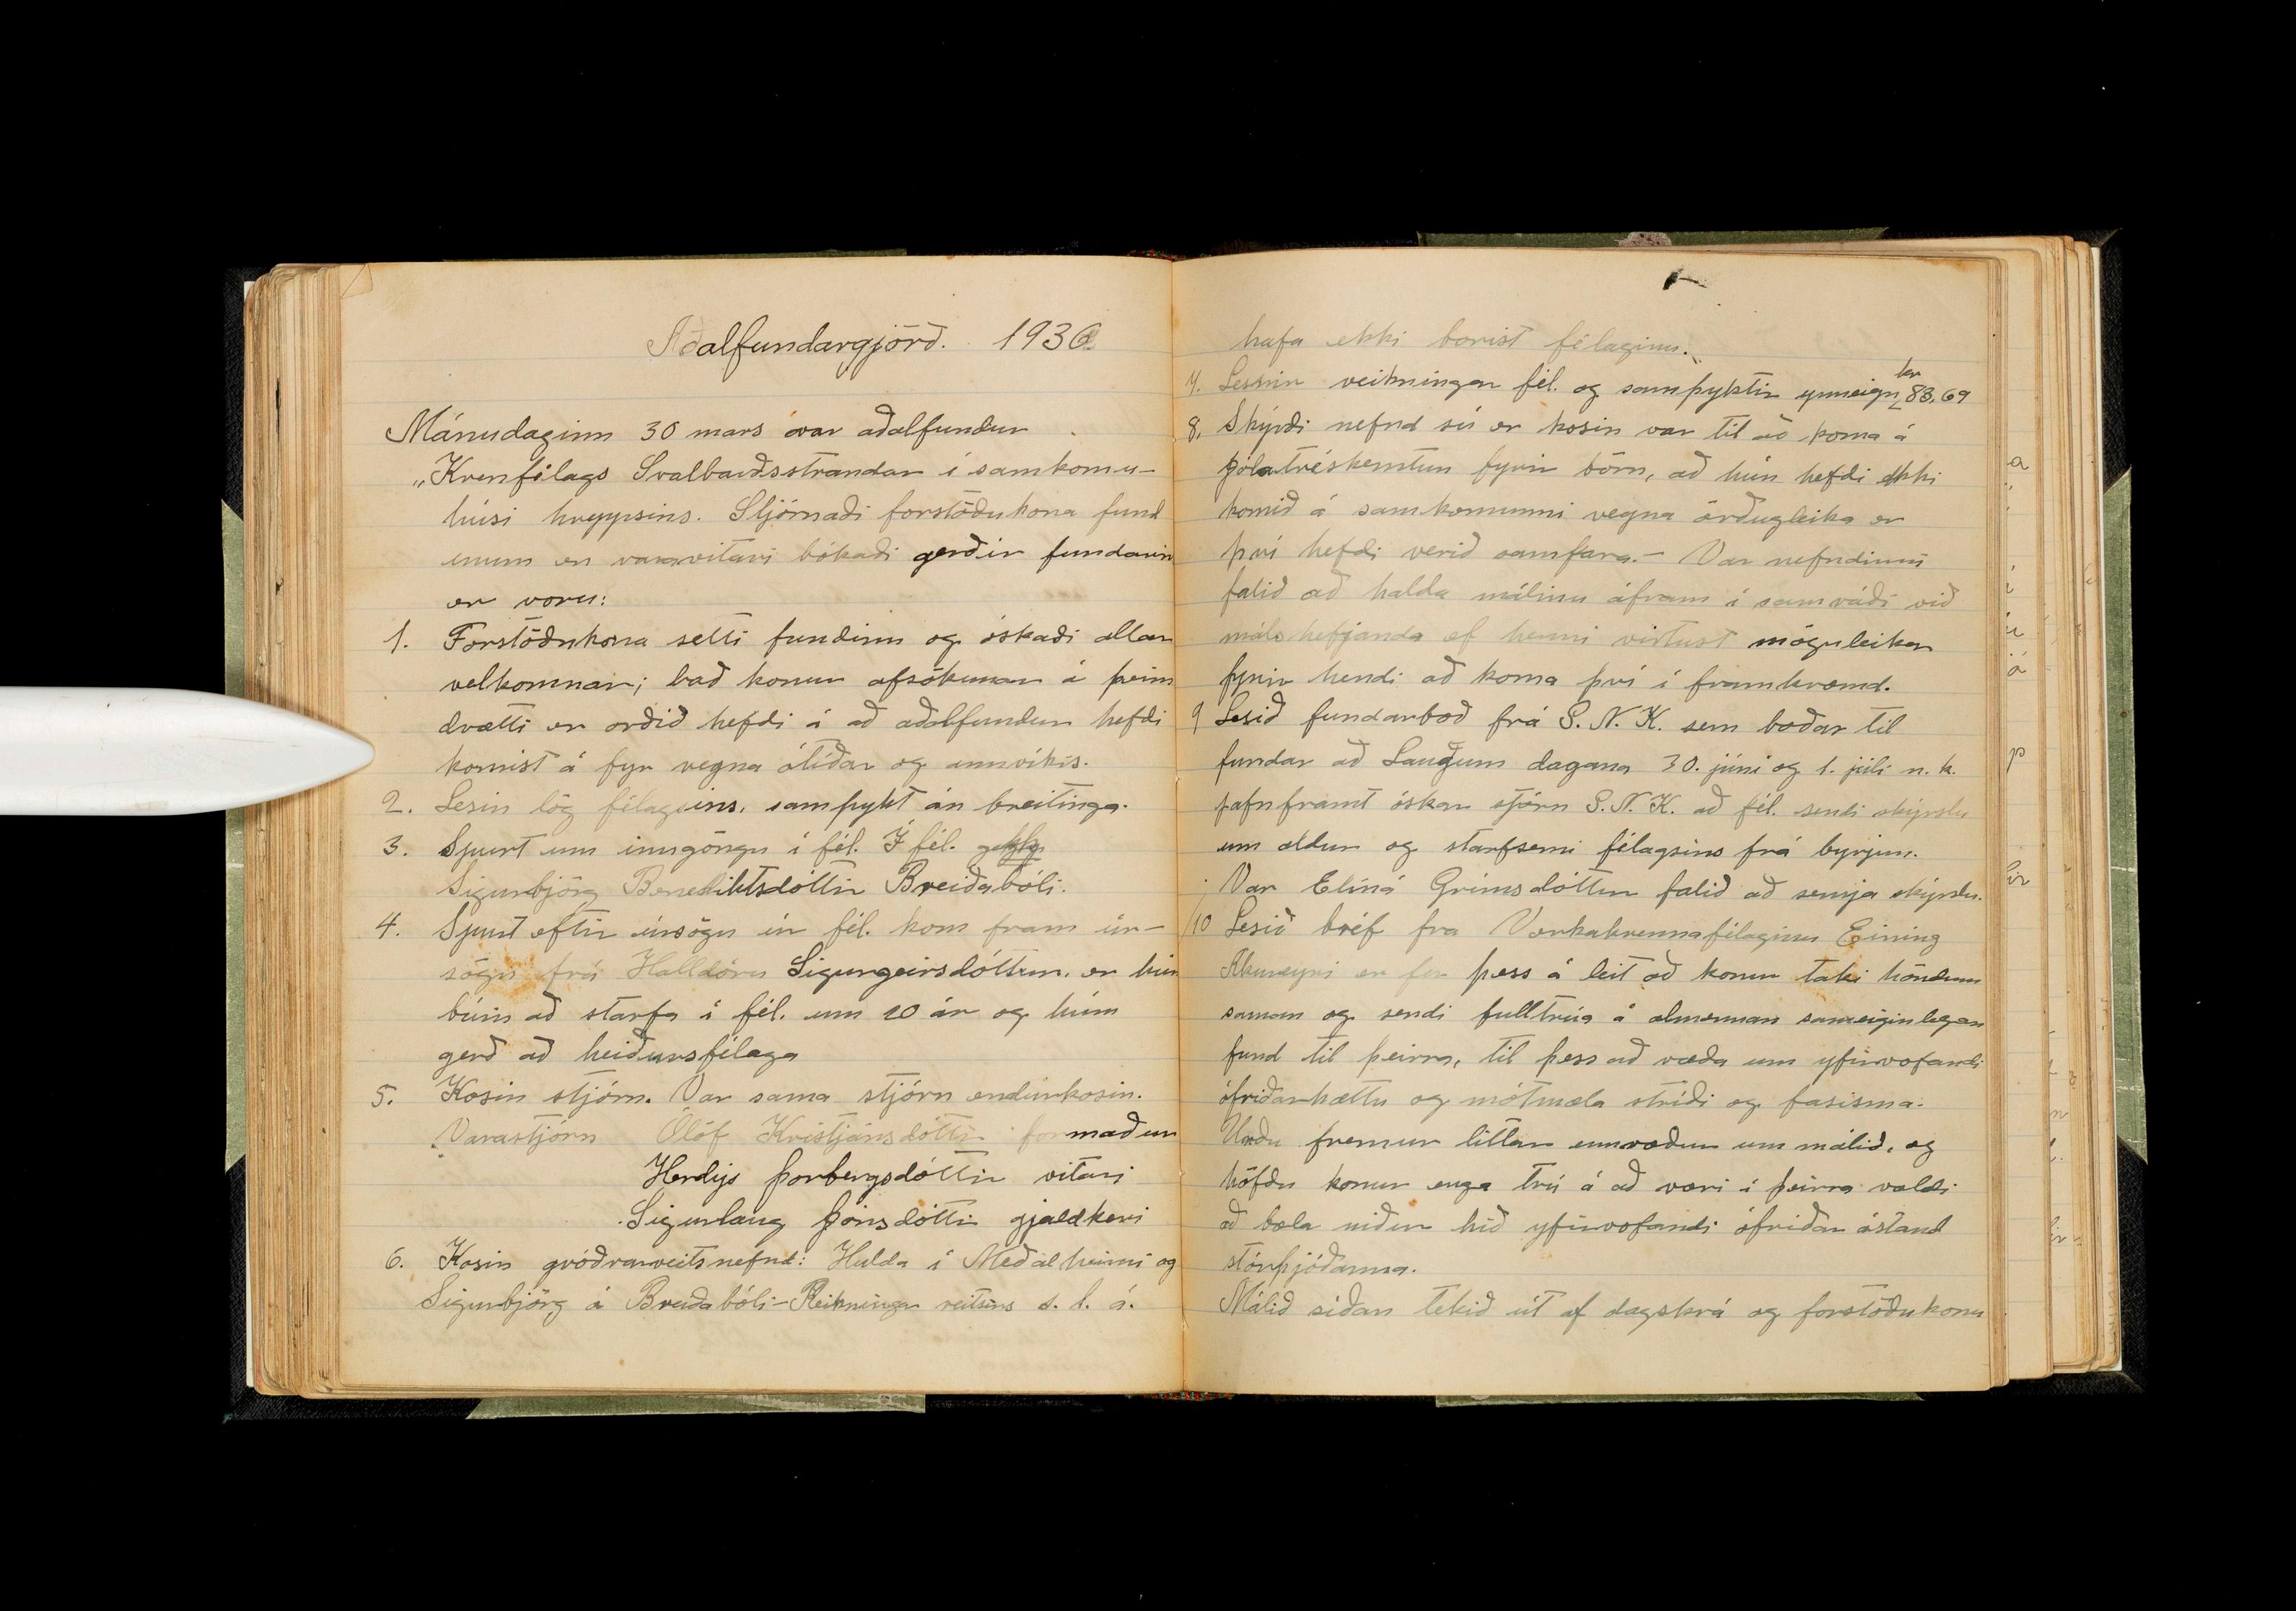 Aðalfundargjörð. 1936
Mánudaginn 30 mars var aðalfundur
„Kvenfélags Svalbarðsstrandar í samkomu-
húsi hreppsins. Stjórnaði forstöðukona fund
inum en vararitari bókaði gerðir fundarin
er voru:
1. Forstöðukona setti fundinn og óskaði allar
velkomnar; bað konur afsökunar á þeim
drætti er orðið hefdi á að aðalfundur hefdi
komist á fyr vegna ótíðar og annríkis.
2. Lesin lög félagsins, samþykt án breitinga.
3. Spurt um inngöngu í fél. Í fél. gekk
Sigurbjörg Benediktsdóttir Breiðabóli.
4. Spurt eftir úrsögn úr fél. kom fram úr-
sögn frá Halldóru Sigurgeirsdóttur, er hún
búin að starfa í fél. um 20 ár og húin
gerð að heiðursfélaga
5. Kosin stjórn. Var sama stjórn endurkosin.
Varastjórn Ólöf Kristjánsdóttir formaður
Herdýs Þorbergsdóttir ritari
Sigurlaug Jónsdóttir gjaldkeri
6. Kosin gróðrarreitsnefnd: Hulda í Meðalheimi og
Sigurbjörg á Breiðabóli- Reikningar reitsins s. l. á.
hafa ekki borist félaginu.
7. Lesnir reikningar fél. og samþyktir kr 83,69
8. Skýrði nefnd sú er kosin var til að koma á
jólatréskemtun fyrir börn, að hún hefdi ekki
komið á samkomunni vegna örðugleika er
því hefdi verið samfara.- Var nefndinni
falið að halda málinu áfram í samráði við
málshefjanda ef henni virtust möguleikar
fyrir hendi að koma því í framkvæmd.
9 Lesið fundarboð frá S. N. K. sem boðar til
fundar að Laugum dagana 30. júní og 1. júlí n. k.
jafnframt óskar stjórn S. N. K. að fél. sendi skýrslu
um aldur og starfsemi félagsins frá byrjun.
Var Elíná Grímsdóttur falið að semja skýrslu.
10 Lesið bréf fra Verkakvennafélaginu Eining
Akureyri er fer þess á leit að konur taki höndum
saman og sendi fulltrúa á almennan sameiginlegan
fund til þeirra, til þess að ræða um yfirvofandi
ófriðarhættu og mótmæla stríði og fasisma.
Urðu fremur littlar umræður um málið, og
höfðu konur enga trú á að væri í þeirra valdi
að bæla niður hið yfirvofandi ófriðar ástand
stórþjóðanna.
Málið síðan tekið út af dagskrá og forstöðukonu